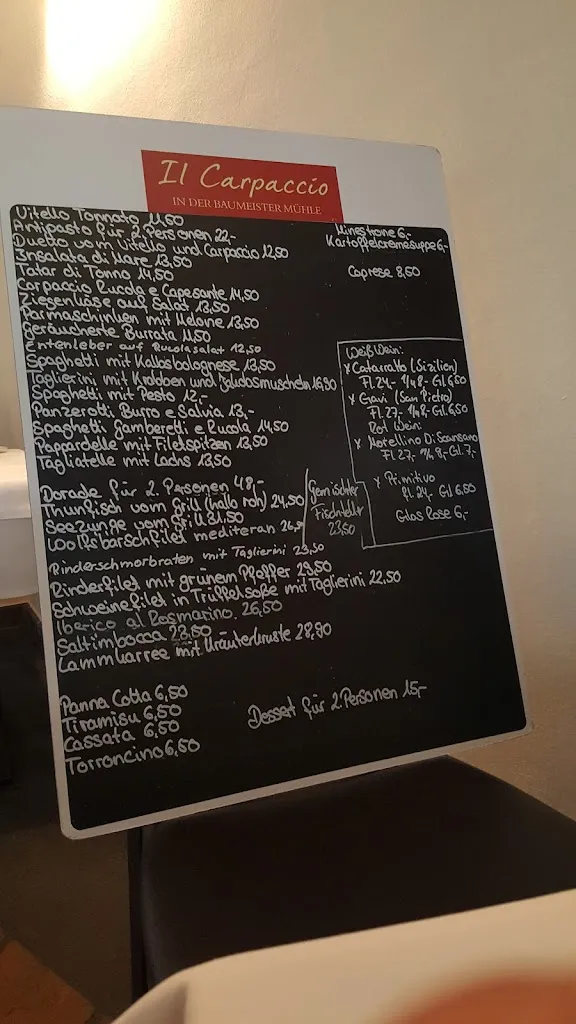 Il Carpaccio
IN DER BAUMEISTER MÜHLE
Vitello Tonnato 11,50
Antipasto für 2 Personen 22,-
Duetto vom Vitello und Carpaccio 12,50
Insalata di Mare 13,50
Tatar di Tonno 14,50
Carpaccio Rucola e Capesante 14,50
Ziegenkäse auf Salat 13,50
Parmaschinken mit Melone 13,50
Geräucherte Burrata 11,50
Entenleber auf Rucolasalat 12,50
Spaghetti mit Kalbsbolognese 13,50
Taglierini mit Krabben und Jakobsmuscheln 16,90
Spaghetti mit Pesto 12,-
Panzerotti Burro e Salvia 13,-
Spaghetti Gamberetti e Rucola 14,50
Pappardelle mit Filetspitzen 13,50
Tagliatelle mit Lachs 13,50
Minestrone 6,-
Kartoffelcremesuppe 6,-
Caprese 8,50
Weiß Wein:
x Catarratto (Sizilien)
Fl. 24.- 1/4 8.- Gl. 6,50
x Gavi (San Pietro)
Fl. 27.- 1/4 8.- Gl. 6,50
Rot Wein:
x Morellino Di Scansano
Fl. 27.- 1/4 8,- Gl. 7,-
x Primitivo
Fl. 24.- Gl 6,50
Glas Rose 6,-
Dorade für 2. Personen 48,-
Thunfisch vom Grill (hallo roh) 24,50
Seezunge vom Grill 31,50
Wolfsbarschfilet mediteran
Gemischter
Fischteller
23,50
Rinderschmorbraten mit Taglierini 23,50
Rinderfilet mit grünem Pfeffer 29,50
Schweinefilet in Trüffelsoße mit Taglierini 22,50
Iberico al Rosmarino. 26,50
Saltimbocca 23,50
Lammkarree mit Kräuterkruste 28,90
Panna Cotta 6,50
Tiramisu 6,50
Cassata 6,50
Torroncino 6,50
Dessert für 2 Personen 15,-